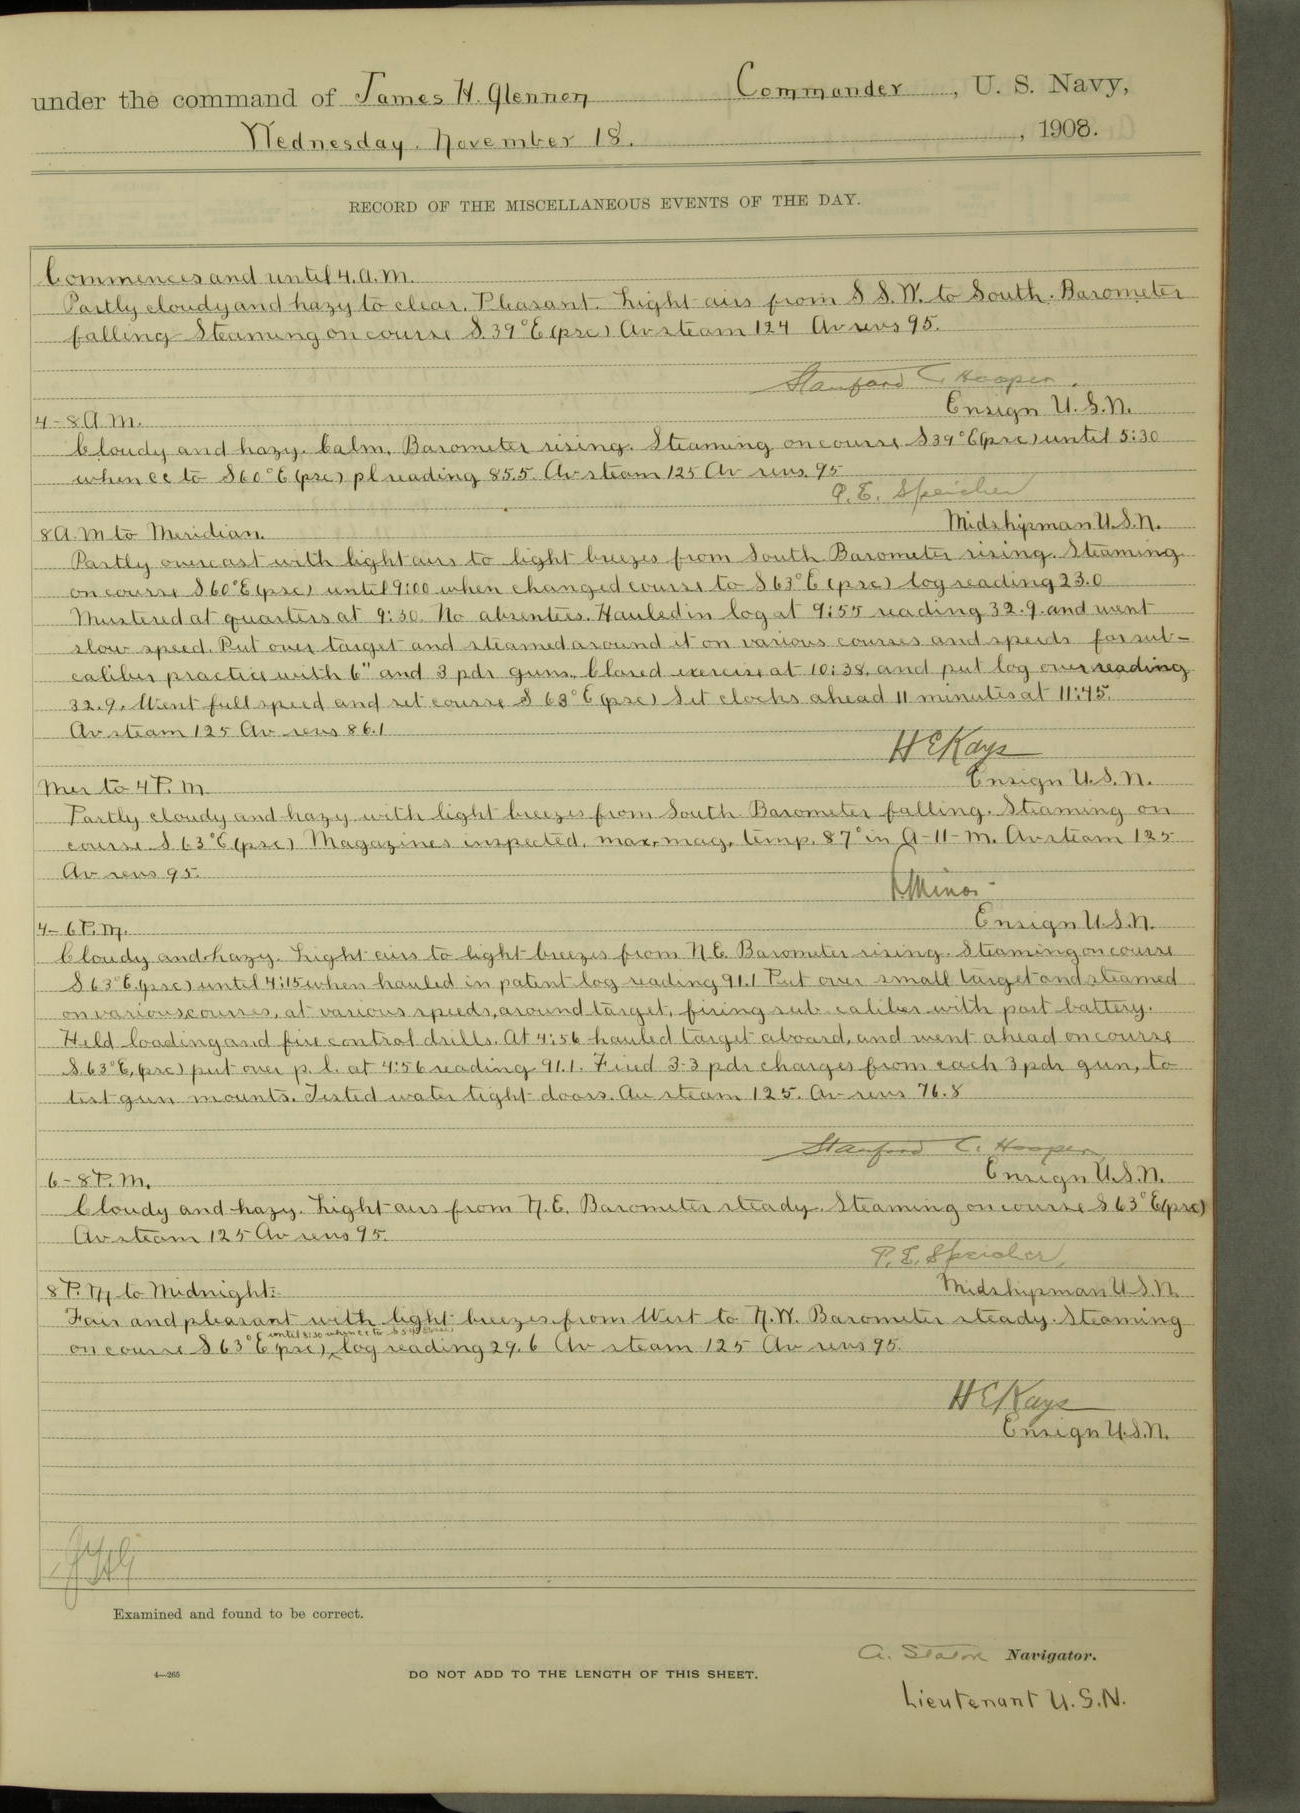 under the command of James H. Glennon Commander, U. S. Navy,
Wednesday. November 18. , 1908.
RECORD OF THE MISCELLANEOUS EVENTS OF THE DAY.
Commences and until 4. A. M.
Partly cloudy and hazy to clear. Pleasant. Light airs from S S. W. to South. Barometer
falling Steaming on course S. 39° E (psc) Av steam 124 Av revs 95.
Stanford C. Hooper.
Ensign U. S. N.
4-8 A. M.
Cloudy and hazy. Calm. Barometer rising. Steaming on course S 39° E (psc) until 5:30
when cc to S 60° E (psc) pl reading 85.5. Av steam 125 Av revs. 95
P. E. Speicher
Midshipman U. S. N.
8 A. M to Meridian.
Partly overcast with light airs to light breezes from South Barometer rising. Steaming
on course S 60° E (psc) until 9:00 when changed course to S 63° E (psc) log reading 23.0
Mustered at quarters at 9:30. No absentees. Hauled in log at 9:55 reading 32.9. and went
slow speed. Put over target and steamed around it on various courses and speeds for sub-
caliber practice with 6" and 3 pdr guns. Closed exercise at 10:38, and put log over reading
32.9. Went full speed and set course S 63° E (psc) Set clocks ahead 11 minutes at 11:45.
Av steam 125 Av revs 86.1
H E Kays
Ensign U. S. N.
Mer to 4 P. M.
Partly cloudy and hazy with light breezes from South Barometer falling. Steaming on
course S 63° E (psc) Magazines inspected, max. mag. temp. 87° in A-11-M. Av steam 125
Av revs 95.
Minor
Ensign U. S. N.
4-6 P. M.
Cloudy and hazy. Light airs to light breezes from N. E. Barometer rising. Steaming on course
S 63° E. (psc) until 4:15 when hauled in patent log reading 91.1 Put over small target and steamed
on various courses, at various speeds, around target, firing sub caliber with port battery.
Held loading and fire control drills. At 4:56 hauled target aboard, and went ahead on course
S. 63° E, (psc) put over p. l. at 4:56 reading 91.1. Fired 3-3 pdr charges from each 3 pdr gun, to
test gun mounts. Tested water tight doors. Av steam 125. Av revs 76.8
Stanford C. Hooper,
Ensign U. S. N.
6-8 P. M.
Cloudy and hazy. Light airs from N. E. Barometer steady. Steaming on course S 63° E (psc)
Av steam 125 Av revs 95.
P. E. Speicher,
Midshipman U. S. N.
8 P. M to Midnight:
Fair and pleasant with light breezes from West to N. W. Barometer steady. Steaming
until 8:30 when cc to
on course S 63° E (psc), log reading 29.6 Av steam 125 Av revs 95.
H E Kays
Ensign U. S. N.
JHG
Examined and found to be correct.
A. Staton Navigator.
4—265
DO NOT ADD TO THE LENGTH OF THIS SHEET.
Lieutenant U. S. N.